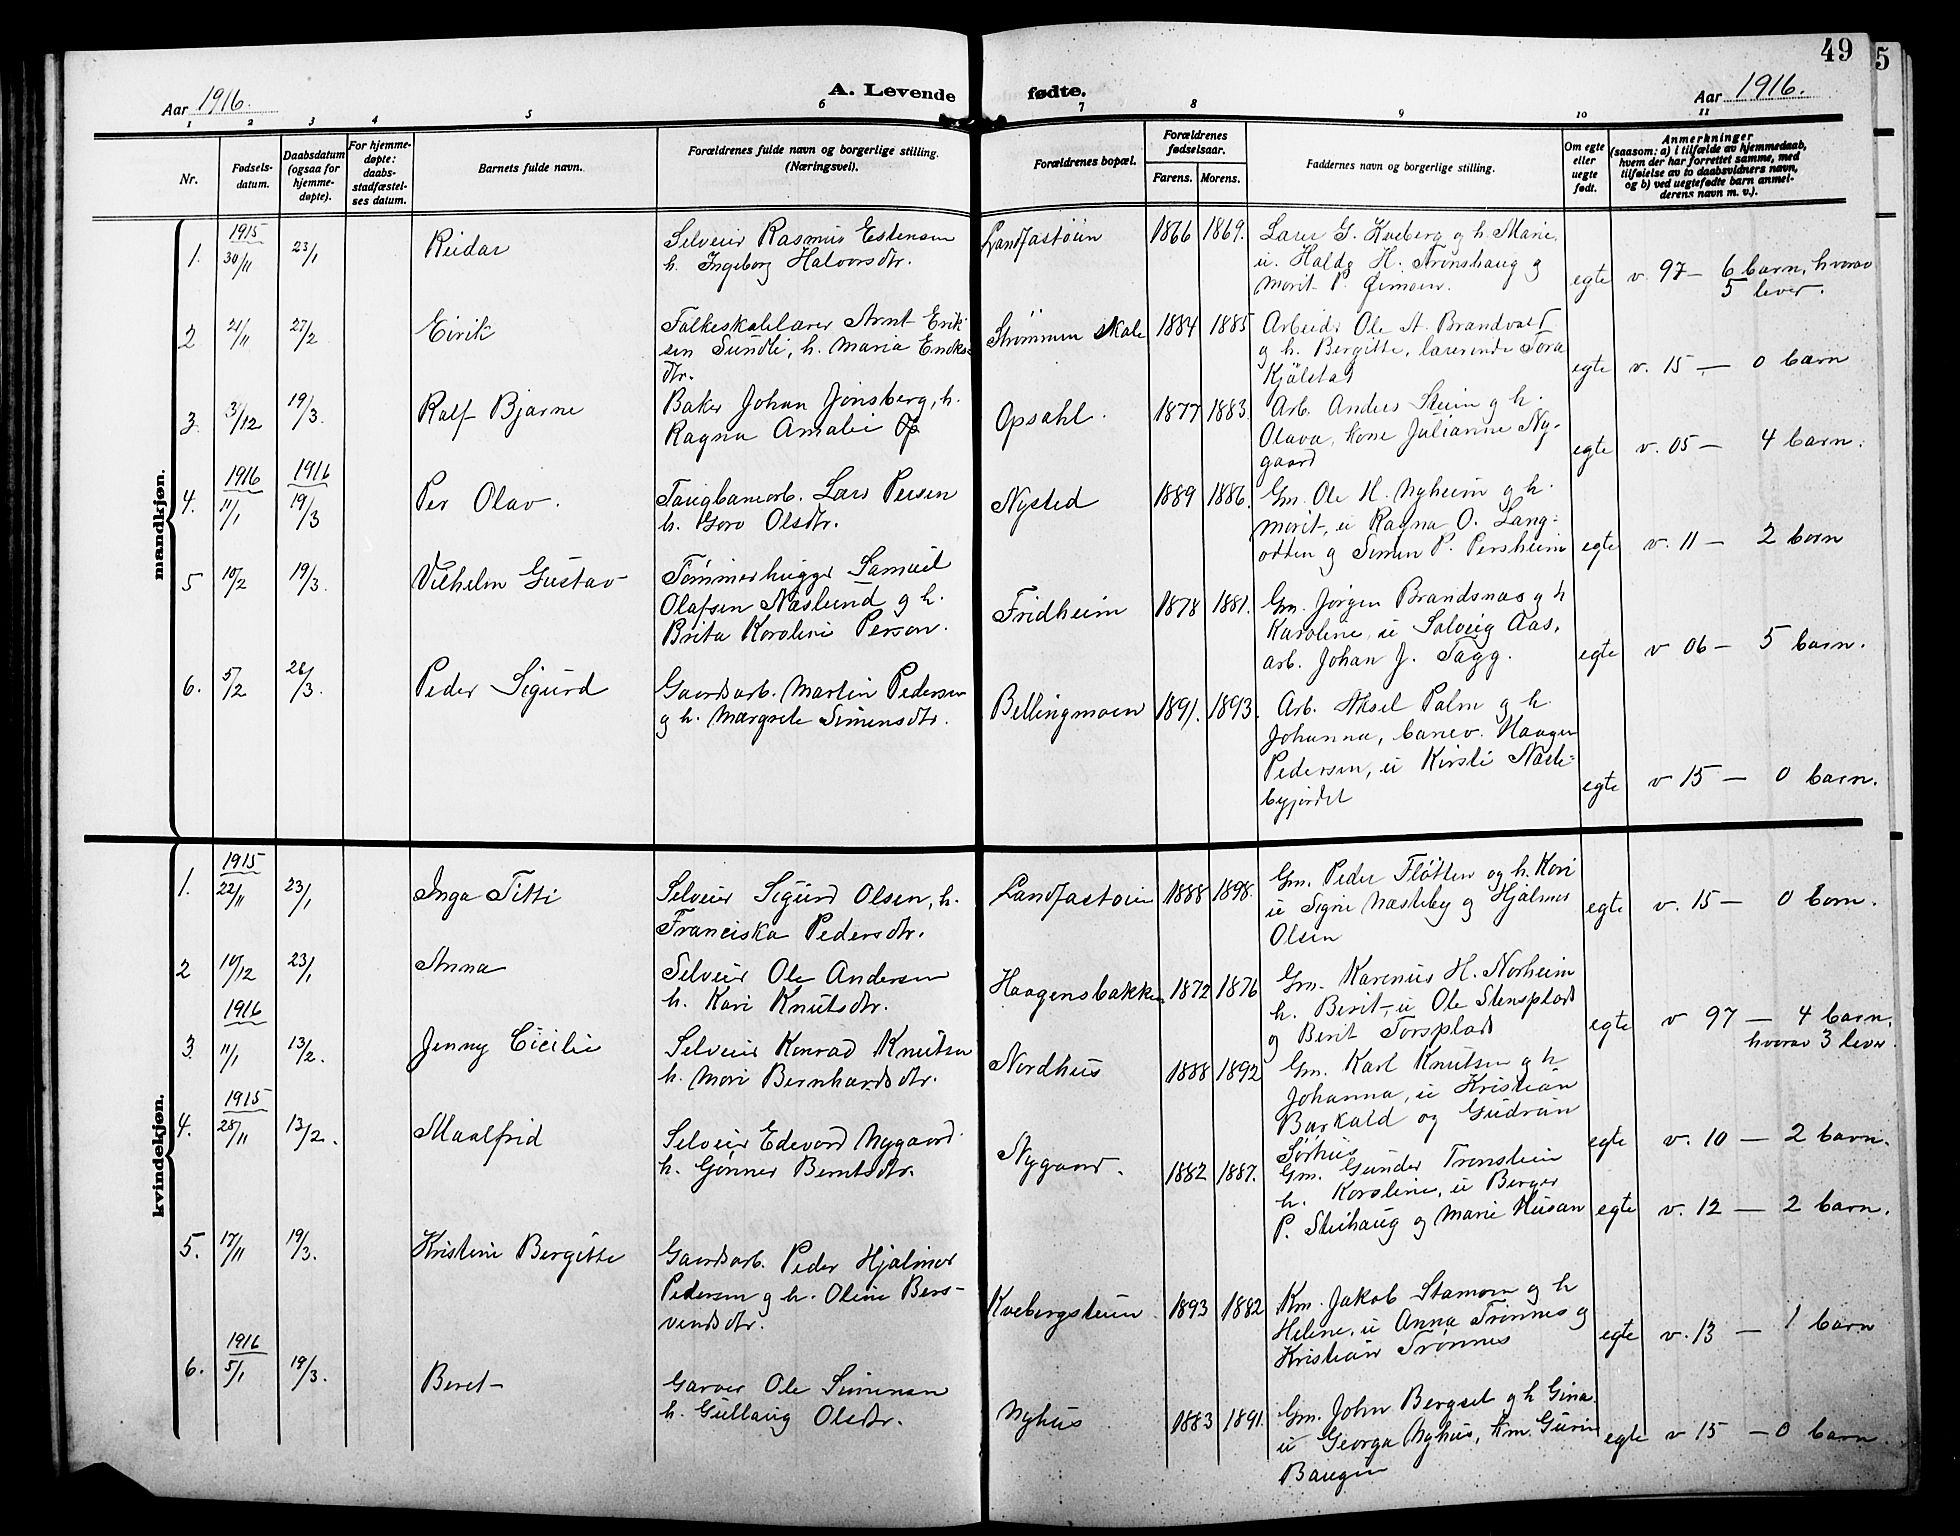 49
5
Aar 1916.
A. Levende fødte.
Aar 1916.
1 2 3 4 5 6 7 8 9 10 11
Nr.
Fødsels-
datum.
Daabsdatum
(ogsaa for
hjemme-
døpte).
For hjemme-
døpte:
daabs-
stadfæstel-
ses datum.
Barnets fulde navn.
Forældrenes fulde navn og borgerlige stilling.
(Næringsvei).
Forældrenes bopæl.
Forældrenes
fødselsaar.
Farens. Morens.
Faddernes navn og borgerlige stilling.
Om egte
eller
uegte
født.
Anmerkninger
(saasom: a) i tilfælde av hjemmedaab,
hvem der har forrettet samme, med
tilføielse av to daabsvidners navn,
og b) ved uegtefødte barn anmel-
derens navn m. v.).
mandkjøn.
1. 1915 30/11 23/1 Reidar
Selveier Rasmus Estensen
h. Ingeborg Halvorsdtr.
Landfastøien 1866 1869.
Lærer G. Kveberg og h. Marie,
u. Haldo H. Trønshaug og
Marit P. Øimoen.
egte v. 97 — 6 barn, hvorav
5 lever.
2 21/11 27/2 Eirik
Folkeskolelærer Arnt Erik
sen Sundli, h. Maria Eriks
dtr.
Strømmen skole 1884 1885
Arbeider Ole A. Brandvold
og h. Bergitte, lærerinde Tora
Kjølstad
egte v. 15 — 0 barn
3. 31/12 19/3. Ralf Bjarne
Baker Johan Jønsberg, h.
Ragna Amalie
Opsahl. 1877 1883.
Arb. Anders Steien og h.
Olava, kone Julianne Ny-
gaard
egte v. 05 — 4 barn.
4. 1916 11/1 1916 19/3 Per Olav.
Taugbanearb. Lars Persen
h. Goro Olsdtr.
Nysted 1889 1886.
Gm. Ole H. Nyheim og h.
Marit, u Ragna O. Lang-
odden og Simen P. Persheim
egte v. 11 — 2 barn
5 10/2 19/3. Vilhelm Gustav
Tømmerhugger Samuel
Olafsen Næslund og h.
Brita Karoline Person.
Fridheim 1878 1881.
Gm. Jørgen Brandsnæs og h
Karoline, u Solveig Aas,
arb. Johan J. Tagg.
egte v 06 — 5 barn.
6. 5/2 26/3. Peder Sigurd
Gaardsarb. Martin Pedersen
og h. Margrete Simensdtr.
Bellingmoen 1891. 1893.
Arb. Aksel Palm og h
Johanna, banev. Haagen
Pedersen, u Kirsti Næste-
byjordet
egte v 15 — 0 barn.
kvindekjøn.
1. 1915 22/11 23/1 Inga Titti
Selveier Sigurd Olsen, h.
Franciska Pedersdtr.
Landfastøien 1888 1898.
Gm. Peder Fløtten og h. Kari
u Signe Næsteby og Hjalmar
Olsen
egte v. 15 — 0 barn.
2 10/12 23/1 Anna
Selveier Ole Andersen
h. Kari Knutsdtr.
Haagensbakken 1872 1876
Gm. Karenus H. Norheim
h. Berit, u Ole Stensplads
og Berit Torsplads
egte v 97 — 4 barn,
hvorav 3 lever.
3. 1916 11/1 13/2. Jenny Cicilie
Selveier Konrad Knutsen
h. Mari Bernhardsdtr.
Nordhus 1888 1892
Gm. Karl Knutsen og h
Johanna, u Kristian
Barkald og Gudrun
Sørhus
egte v. 10 — 2 barn.
4. 1915 28/11 13/2. Maalfrid
Selveier Edevard Nygaard
h. Gønner Berntsdtr.
Nygaard. 1882 1887.
Gm. Gunder Tronstein
h. Karoline, u Berger
P. Steihaug og Marie Husan
egte v. 12 — 2 barn.
5. 17/11 19/3. Kristine Bergitte
Gaardsarb. Peder Hjalmar
Pedersen og h. Oline Bers-
vendsdtr.
Kvebergsteien 1893 1882
Km. Jakob Stamoen og h
Helene, u Anna Trønnes og
Kristian Trønnes
egte v. 13 — 1 barn
6. 1916 5/1 19/3. Beret
Garver Ole Simensen
h. Gullaug Olsdtr.
Nyhus 1883 1891.
Gm. John Bergset og h Gina
u Georga Nyhus, Km. Gurin
Baugen
egte v 15 — 0 barn.